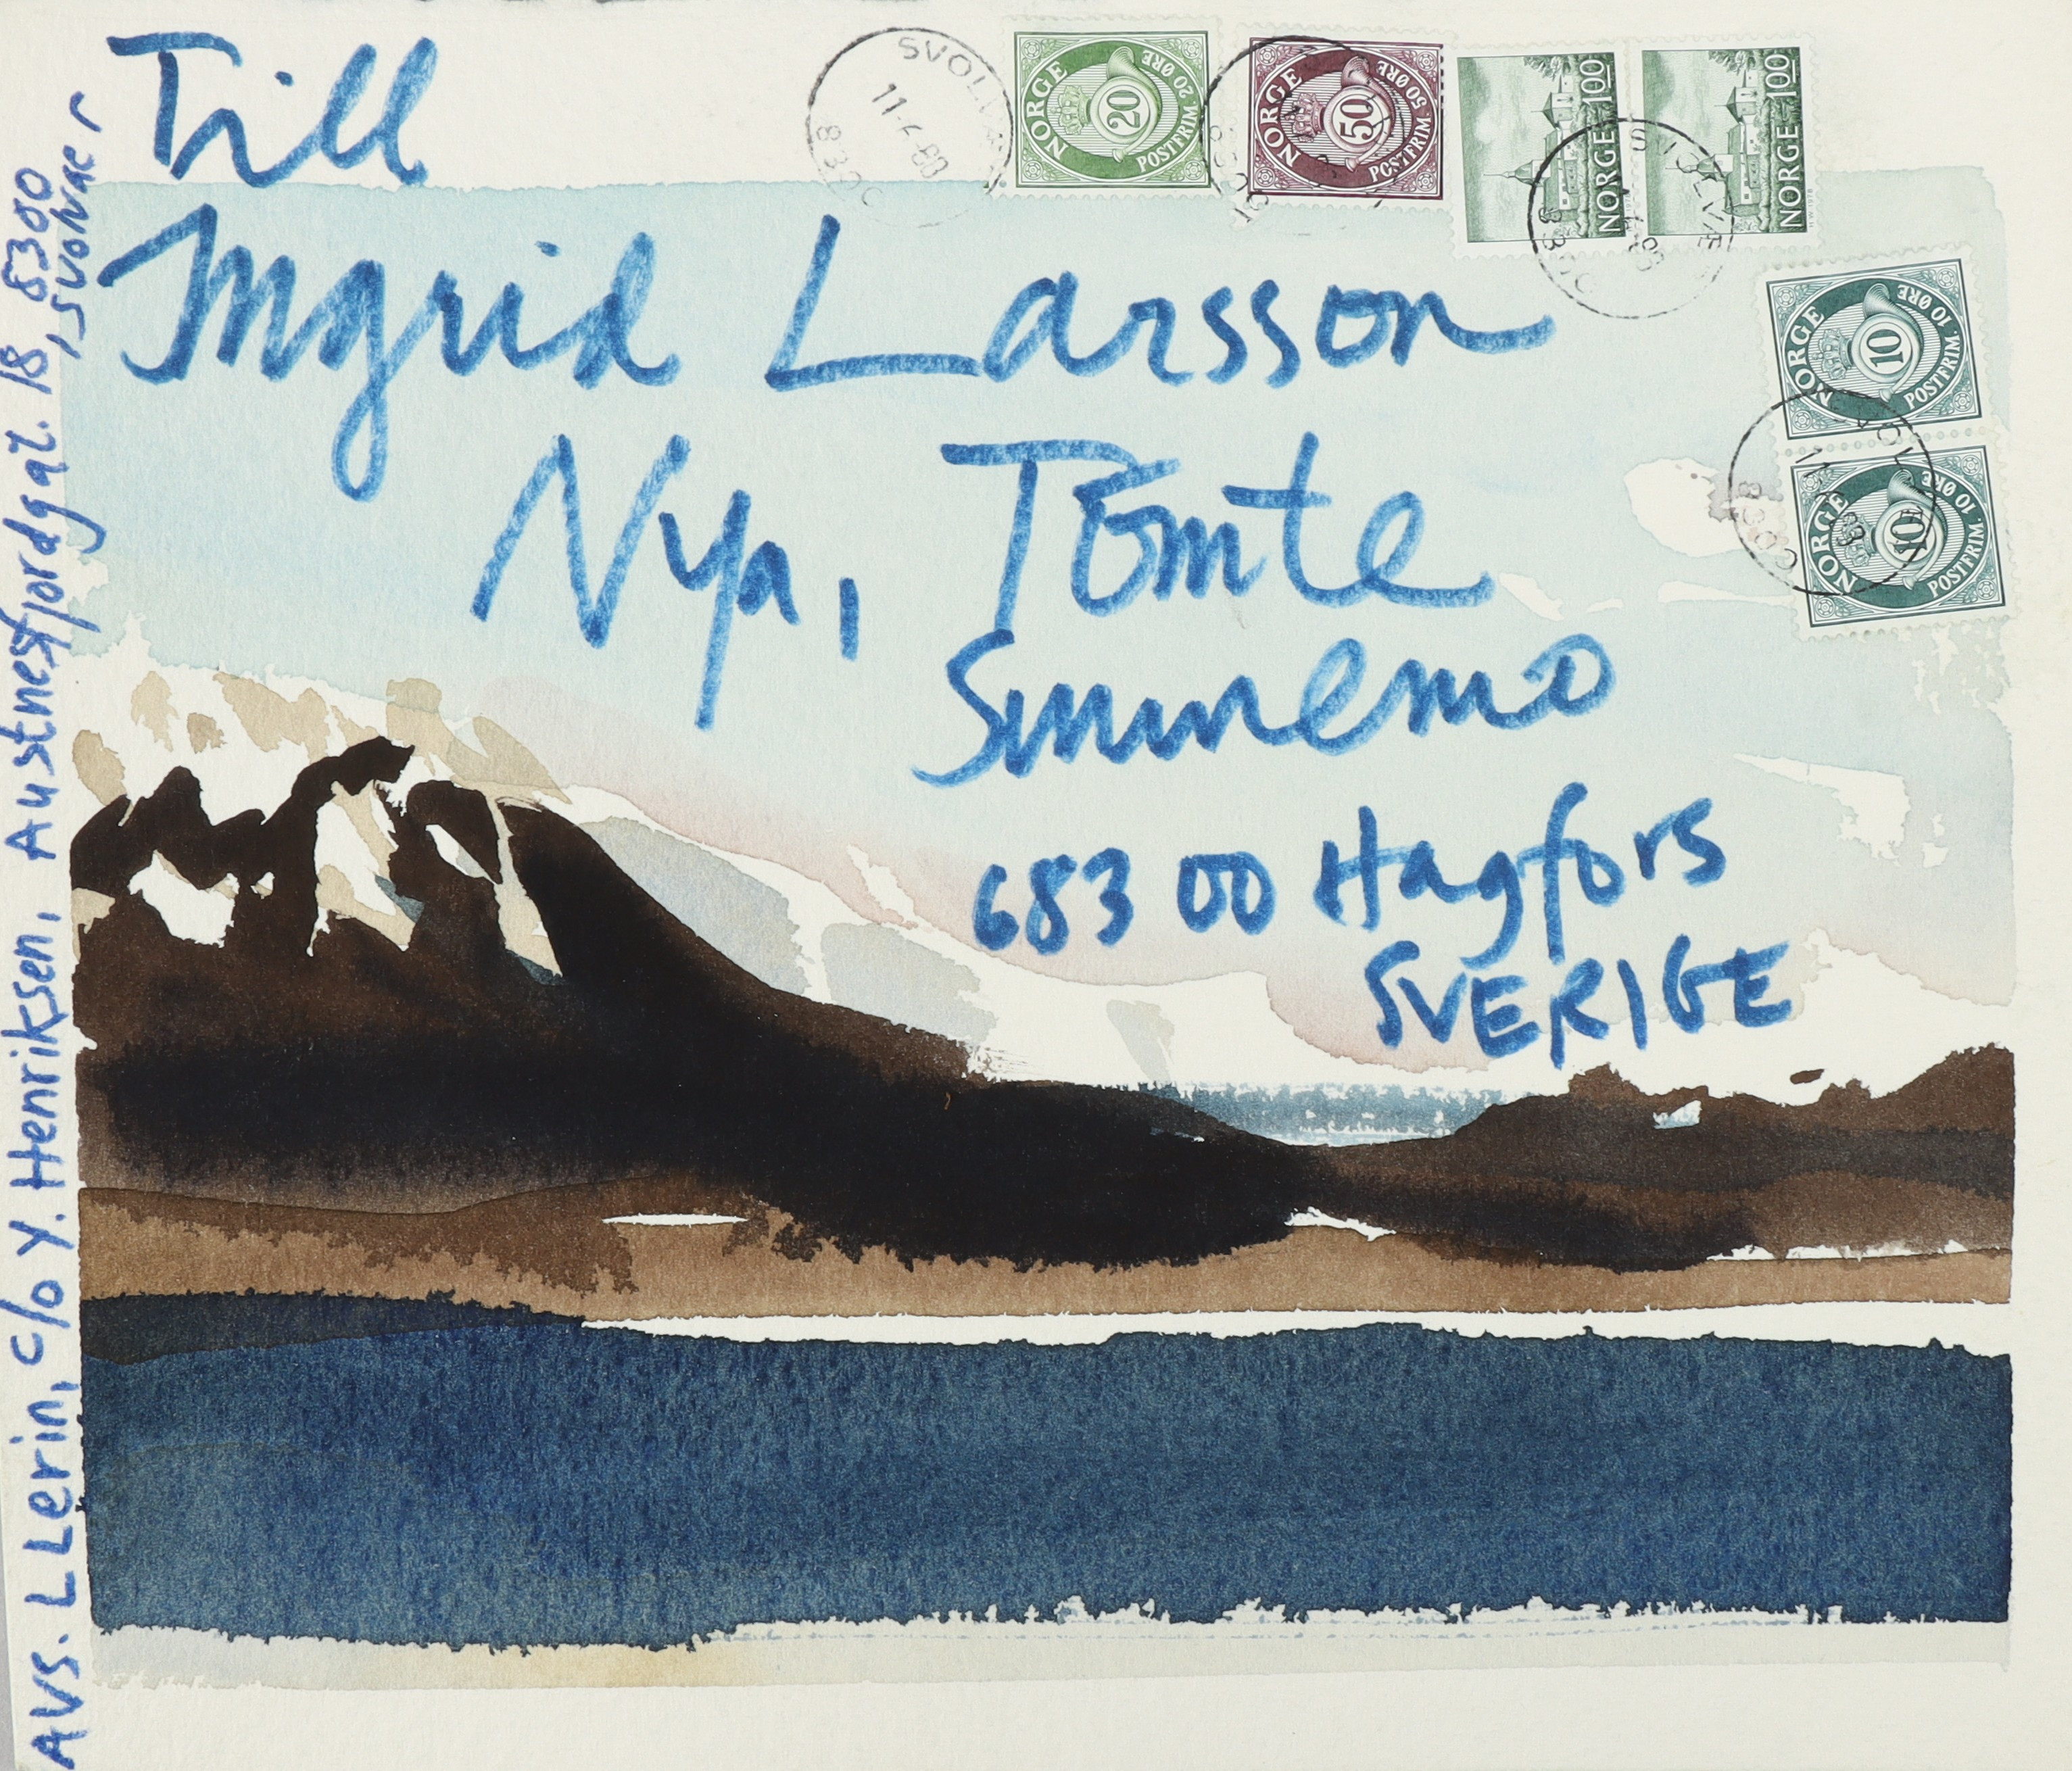 Till
Ingrid Larsson
Nya, Tomte
Sunnemo
683 00 Hagfors
SVERIGE
AVS. L Lerin, c/o Y. Henriksen, Austnesfjordgat. 18, 8300
, Svolvær
SVOLVÆR
8300
NORGE 20 POSTFRIM. 20 ØRE
NORGE 50 POSTFRIM. 50 ØRE
NORGE 100
NORGE 100
SVOLVÆR
8300
NORGE 10 POSTFRIM. 10 ØRE
NORGE 10 POSTFRIM. 10 ØRE